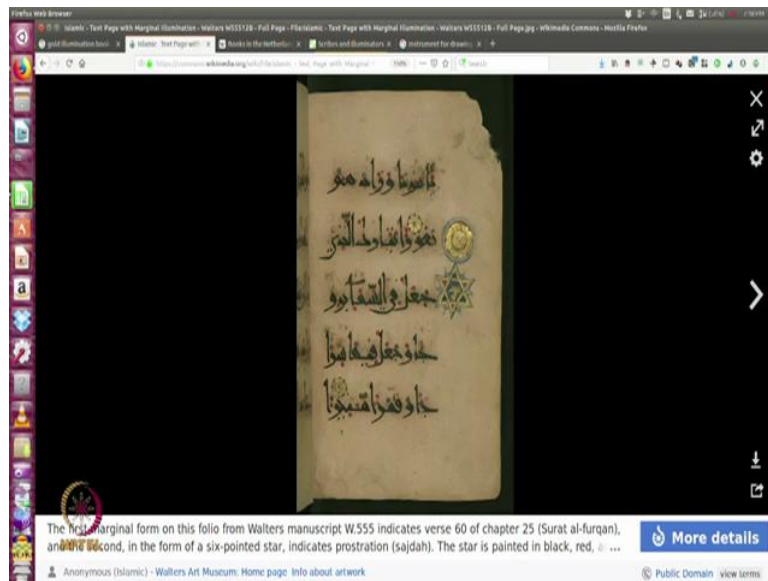 Firefox Web Browser
Islamic - Text Page with Marginal Illumination - Walters W555128B - Full Page - File:Islamic - Text Page with Marginal Illumination - Walters W555128B - Full Page.jpg - Wikimedia Commons - Mozilla Firefox
gold illumination book Islamic - Text Page with Books in the Netherlan Scribes and Illuminators instrument for drawing
Search
تأمرنا وزادهم
نفورا تبارك الذي
جعل في السماء برو
جا وجعل فيها سرا
جا وقمرا منيرا
The first marginal form on this folio from Walters manuscript W.555 indicates verse 60 of chapter 25 (Surat al-furqan),
and the second, in the form of a six-pointed star, indicates prostration (sajdah). The star is painted in black, red, ...
More details
Anonymous (Islamic) - Walters Art Museum: Home page Info about artwork
Public Domain view terms